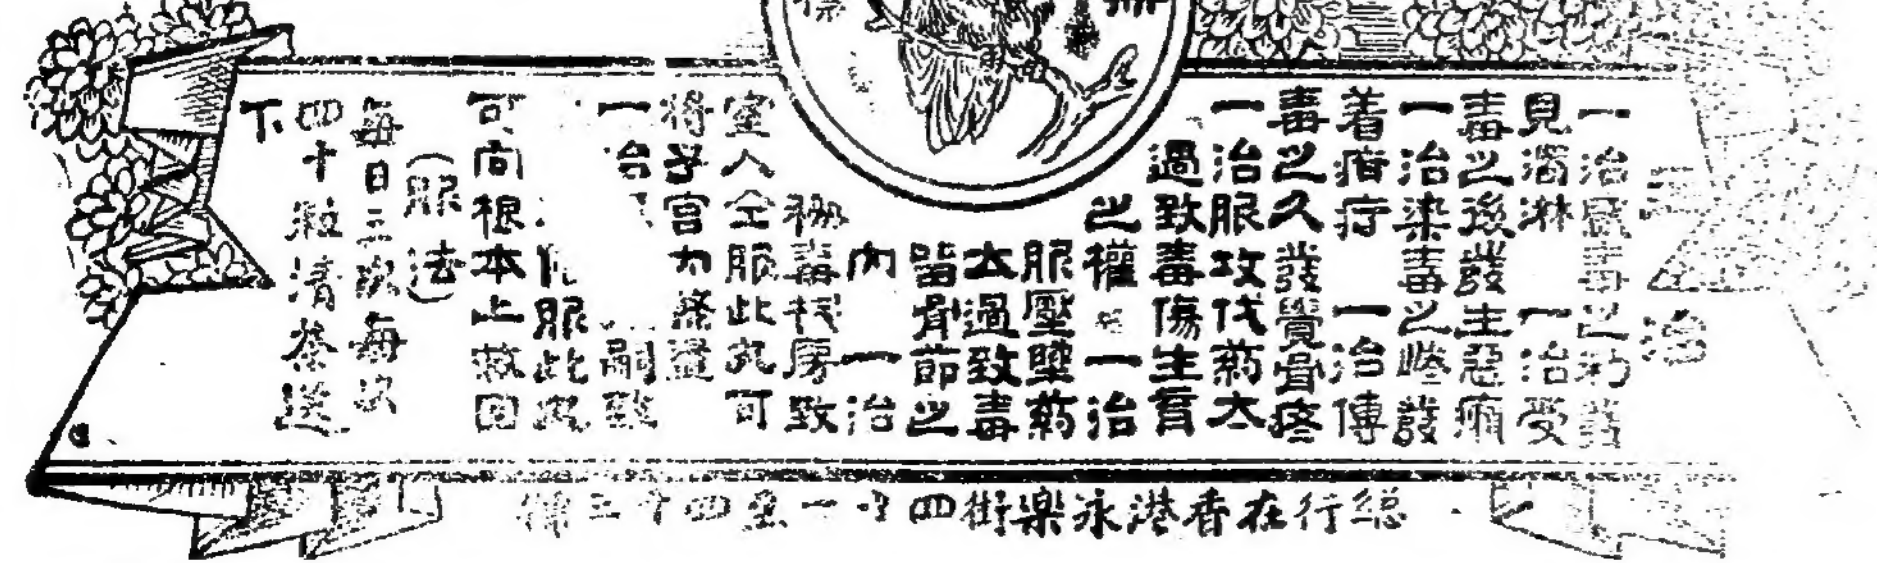 主治
一治感毒之初發
見濁淋　一治受
毒之後發生惡瘡
一治染毒之捲發
着疳疔　一治傳
毒之久發覺骨疼
一治服攻伐藥太
過致毒傷生育
之權　一治
服壓墜藥
太過致毒
留骨節之
內　一治
毒 致
室人仝服此丸可
將子宮內
一治 嗣
服此
可向根本上救回
(服法)
每日三次每次
四十粒清茶送
下
總行在香港永樂街四十一至四十三號